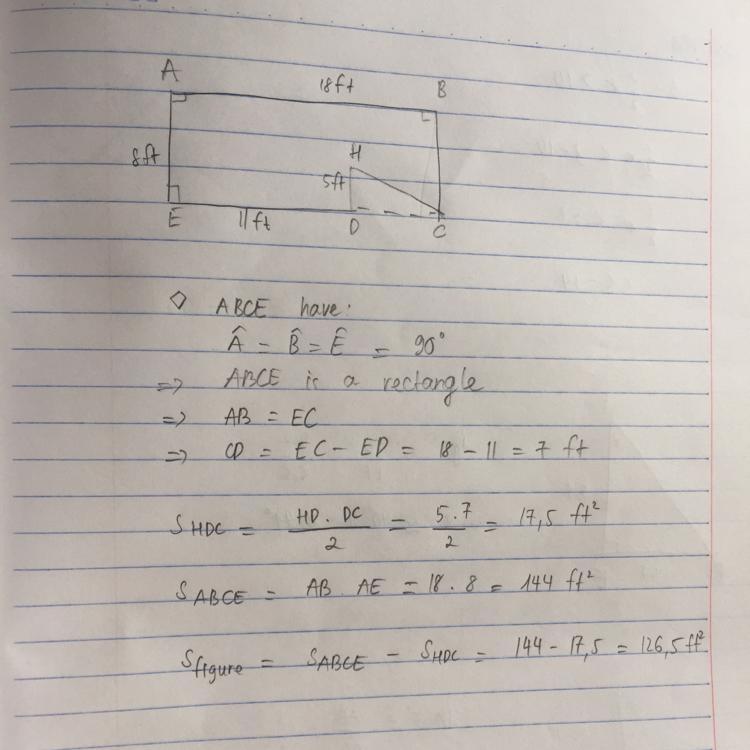 A 18ft B
8ft H
5ft
E 11ft D C
◇ ABCE have:
Â = B̂ = Ê = 90°
=> ABCE is a rectangle
=> AB = EC
=> CD = EC - ED = 18 - 11 = 7 ft
S_HDC = HD . DC / 2 = 5.7 / 2 = 17,5 ft²
S_ABCE = AB . AE = 18 . 8 = 144 ft²
S_figure = S_ABCE - S_HDC = 144 - 17,5 = 126,5 ft²